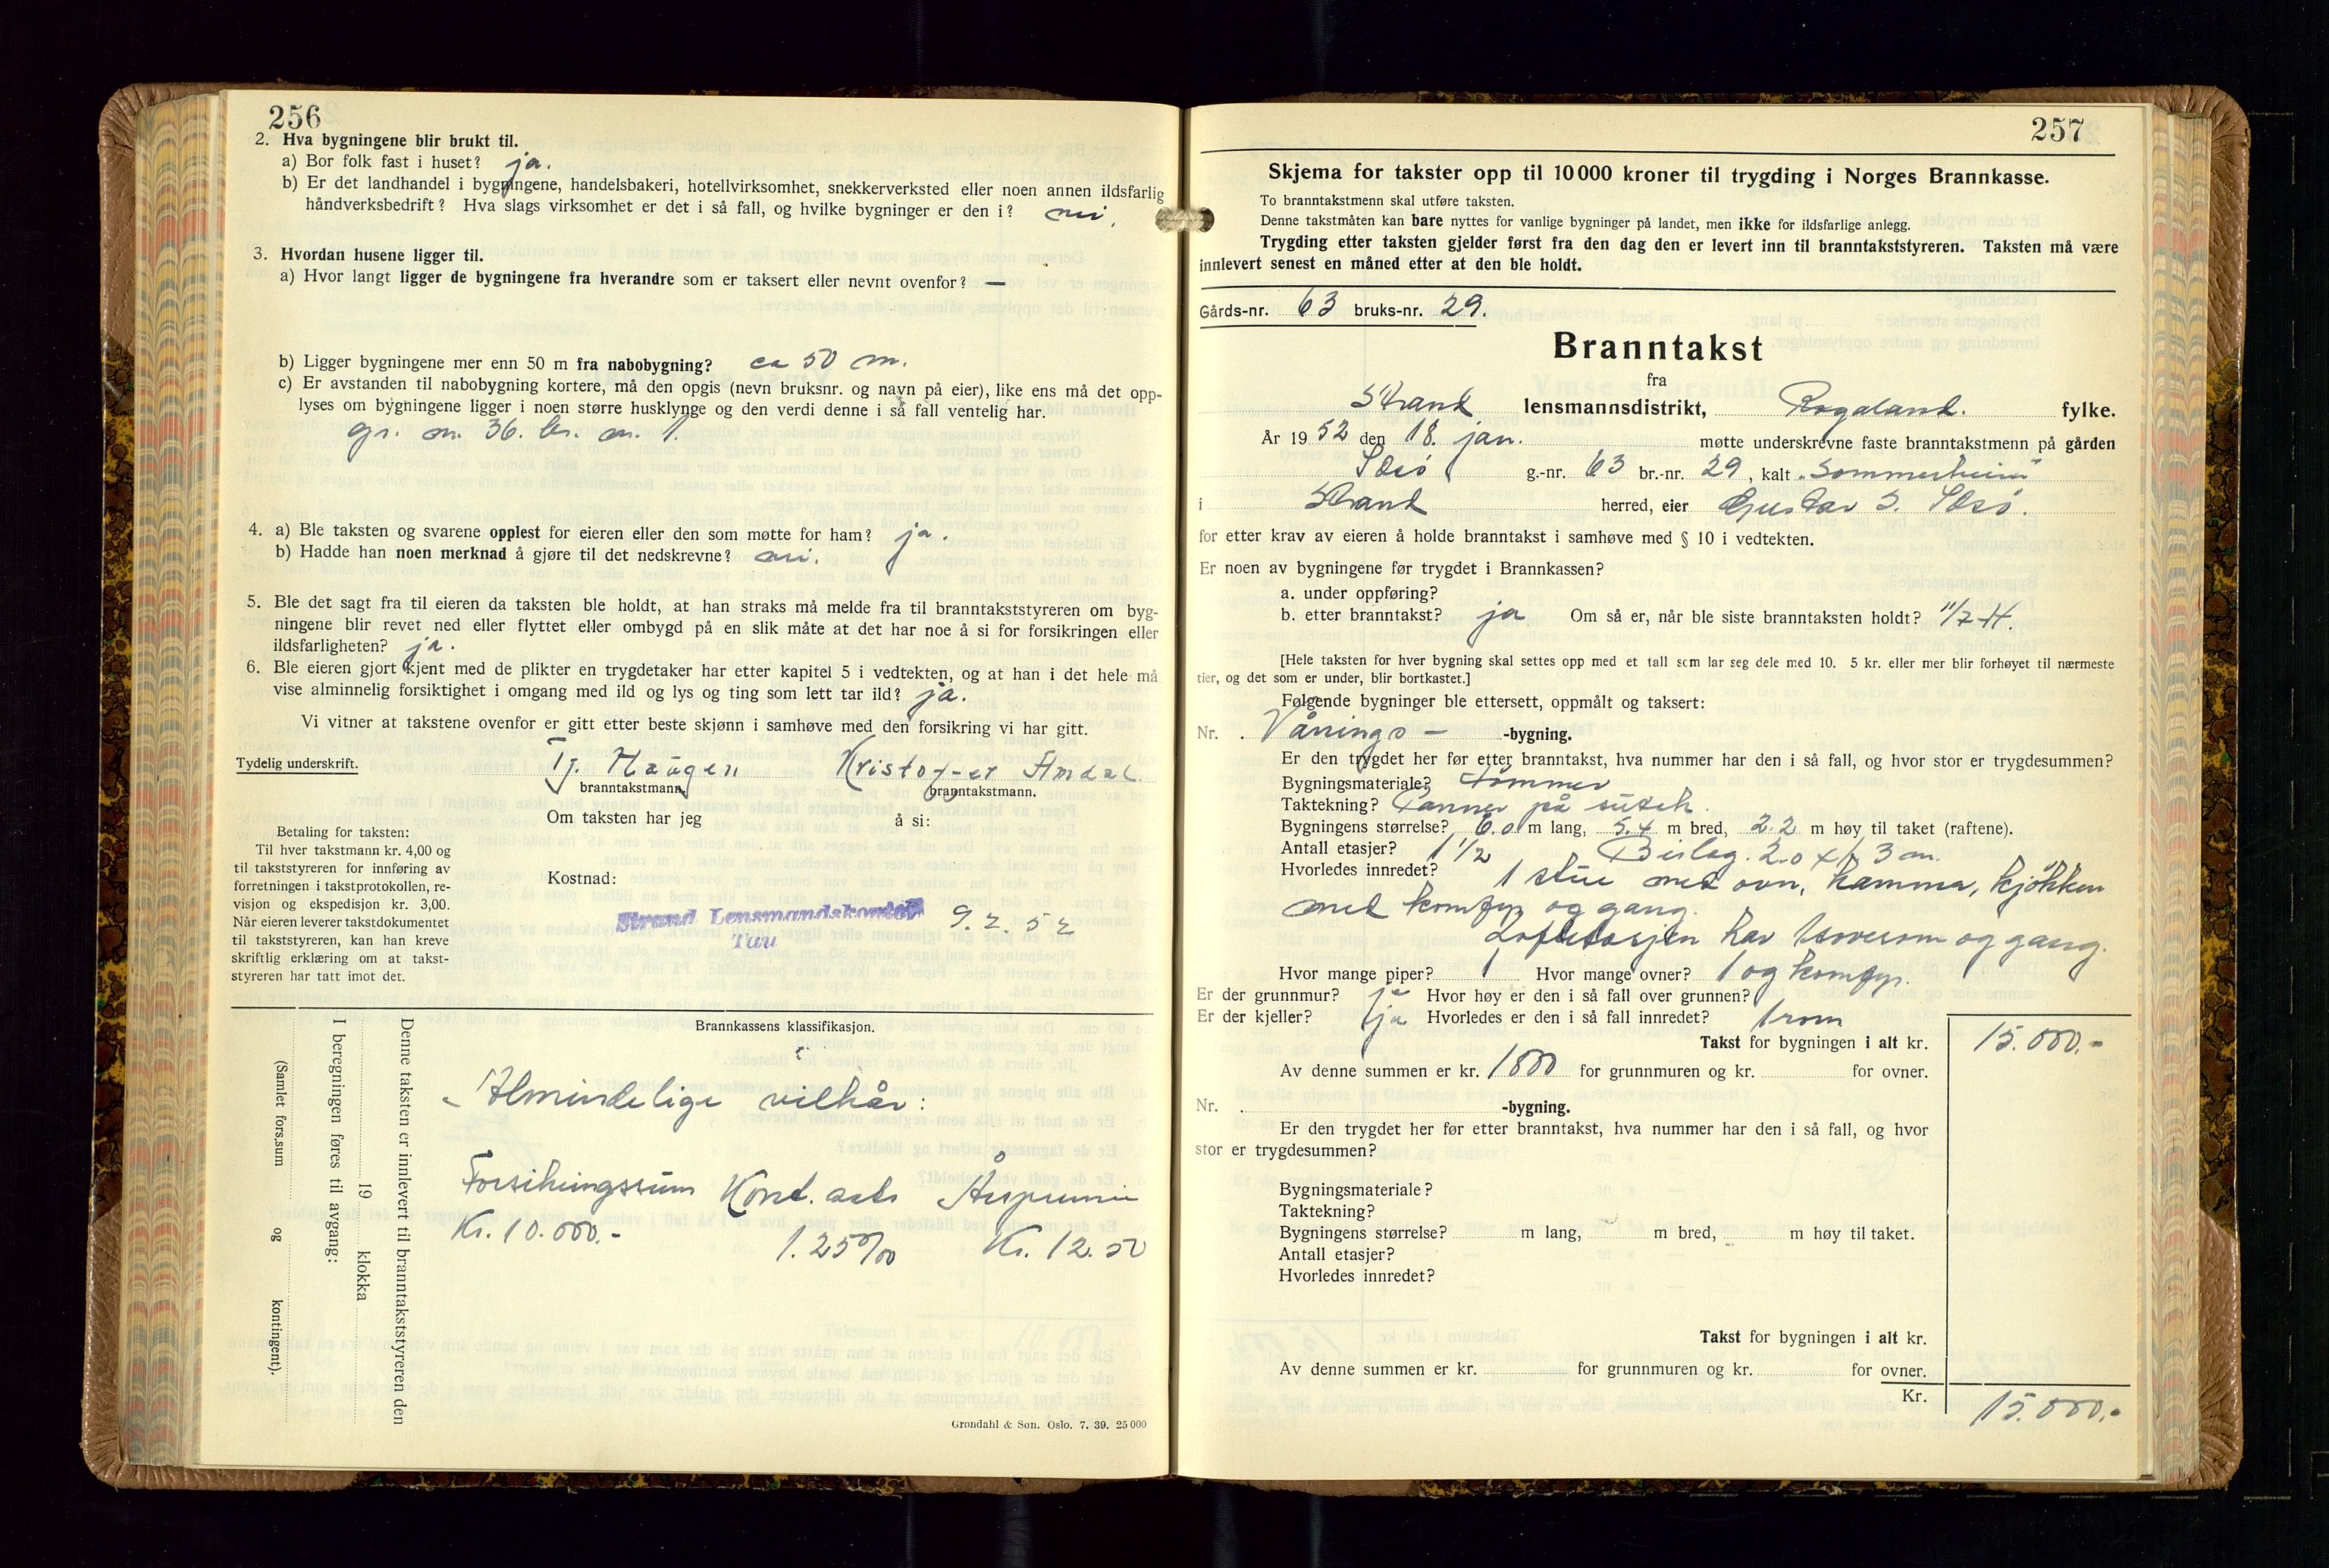 256
2. Hva bygningene blir brukt til.
a) Bor folk fast i huset? ja.
b) Er det landhandel i bygningene, handelsbakeri, hotellvirksomhet, snekkerverksted eller noen annen ildsfarlig
håndverksbedrift? Hva slags virksomhet er det i så fall, og hvilke bygninger er den i? nei.
3. Hvordan husene ligger til.
a) Hvor langt ligger de bygningene fra hverandre som er taksert eller nevnt ovenfor? —
b) Ligger bygningene mer enn 50 m fra nabobygning? ca 50 m.
c) Er avstanden til nabobygning kortere, må den opgis (nevn bruksnr. og navn på eier), like ens må det opp-
lyses om bygningene ligger i noen større husklynge og den verdi denne i så fall ventelig har.
gr. nr. 36. br. nr. 1.
4. a) Ble taksten og svarene opplest for eieren eller den som møtte for ham? ja.
b) Hadde han noen merknad å gjøre til det nedskrevne? nei.
5. Ble det sagt fra til eieren da taksten ble holdt, at han straks må melde fra til branntakststyreren om byg-
ningene blir revet ned eller flyttet eller ombygd på en slik måte at det har noe å si for forsikringen eller
ildsfarligheten? ja.
6. Ble eieren gjort kjent med de plikter en trygdetaker har etter kapitel 5 i vedtekten, og at han i det hele må
vise alminnelig forsiktighet i omgang med ild og lys og ting som lett tar ild? ja.
Vi vitner at takstene ovenfor er gitt etter beste skjønn i samhøve med den forsikring vi har gitt.
Tydelig underskrift. Tj. Haugen Kristoffer Amdal
branntakstmann. branntakstmann.
Om taksten har jeg å si:
Betaling for taksten:
Til hver takstmann kr. 4,00 og
til takststyreren for innføring av
forretningen i takstprotokollen, re-
visjon og ekspedisjon kr. 3,00.
Når eieren leverer takstdokumentet
til takststyreren, kan han kreve
skriftlig erklæring om at takst-
styreren har tatt imot det.
Kostnad:
Strand Lensmandskontor 9. 2. 52
Tau
Denne taksten er innlevert til branntakststyreren den
19 klokka
I beregningen føres til avgang:
(Samlet fors.sum og kontingent).
Brannkassens klassifikasjon.
Almindelige vilkår:
Forsikringssum Kont. sats Årspremie
Kr. 10.000.- 1.25 ‰ Kr. 12.50
Grøndahl & Søn. Oslo. 7. 39. 25 000
257
Skjema for takster opp til 10 000 kroner til trygding i Norges Brannkasse.
To branntakstmenn skal utføre taksten.
Denne takstmåten kan bare nyttes for vanlige bygninger på landet, men ikke for ildsfarlige anlegg.
Trygding etter taksten gjelder først fra den dag den er levert inn til branntakststyreren. Taksten må være
innlevert senest en måned etter at den ble holdt.
Gårds-nr. 63 bruks-nr. 29.
Branntakst
fra
Strand lensmannsdistrikt, Rogaland. fylke.
År 1952 den 18. jan. møtte underskrevne faste branntakstmenn på gården
g.-nr. 63 br.-nr. 29, kalt "Sommerheim"
i Strand herred, eier Gustav S.
for etter krav av eieren å holde branntakst i samhøve med § 10 i vedtekten.
Er noen av bygningene før trygdet i Brannkassen?
a. under oppføring?
b. etter branntakst? ja Om så er, når ble siste branntaksten holdt?
[Hele taksten for hver bygning skal settes opp med et tall som lar seg dele med 10. 5 kr. eller mer blir forhøyet til nærmeste
tier, og det som er under, blir bortkastet.]
Følgende bygninger ble ettersett, oppmålt og taksert:
Nr. Vånings- -bygning.
Er den trygdet her før etter branntakst, hva nummer har den i så fall, og hvor stor er trygdesummen?
Bygningsmateriale? Tømmer
Taktekning? Panner på sutak.
Bygningens størrelse? 6.0 m lang, 5.4 m bred, 2.2 m høy til taket (raftene).
Antall etasjer? 1 1/2 Beslag. 2.0 x 1.3 m.
Hvorledes innredet? 1 stue med ovn, kammer, kjøkken
med komfyr og gang.
Loftetasjen har 1 soverom og gang.
Hvor mange piper? 1 Hvor mange ovner? 1 og komfyr.
Er der grunnmur? ja Hvor høy er den i så fall over grunnen?
Er der kjeller? ja Hvorledes er den i så fall innredet? 1 rom
Takst for bygningen i alt kr. 15.000.-
Av denne summen er kr. 1800 for grunnmuren og kr. for ovner.
Nr. -bygning.
Er den trygdet her før etter branntakst, hva nummer har den i så fall, og hvor
stor er trygdesummen?
Bygningsmateriale?
Taktekning?
Bygningens størrelse? m lang, m bred, m høy til taket.
Antall etasjer?
Hvorledes innredet?
Takst for bygningen i alt kr.
Av denne summen er kr. for grunnmuren og kr. for ovner.
Kr. 15.000.-